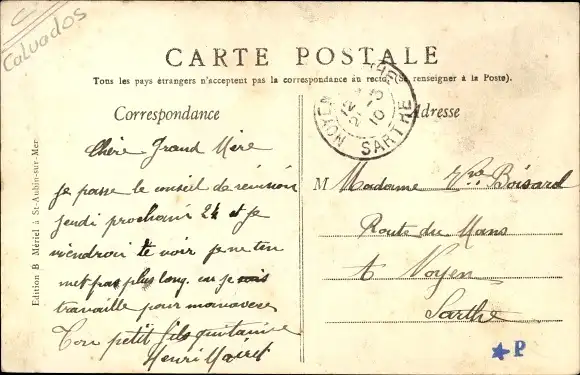 Calvados
CARTE POSTALE
Tous les pays étrangers n'acceptent pas la correspondance au recto (Se renseigner à la Poste).
Correspondance
Adresse
NOYEN
SARTHE
Edition B Mériel à St-Aubin-sur-Mer
Chère Grand Mère
je passe le conseil de revision
jeudi prochain 24 et je
viendroi te voir je ne ten
met pas plus long. car je
travaille pour
Ton petit fils
Henri
M Madame Vve Boisard
Route du Mans
à Noyen
Sarthe
P